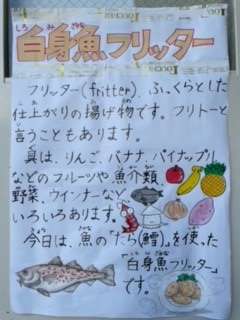 しろ み ざかな
白身魚フリッター
フリッター(fritter)、ふっくらとした
仕上がりの揚げ物です。フリトーと
言うこともあります。
具は、りんご、バナナ、パイナップル
などのフルーツや魚介類、
野菜、ウインナーなど
いろいろあります。
今日は、魚の「たら(鱈)」を使った
「白身魚フリッター」
です。